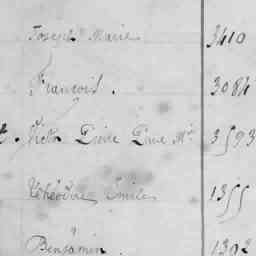 Joseph Marie 3410
François. 3084
Victor Pierre 3593
Théodore Emile 1355
Benjamin. 1302